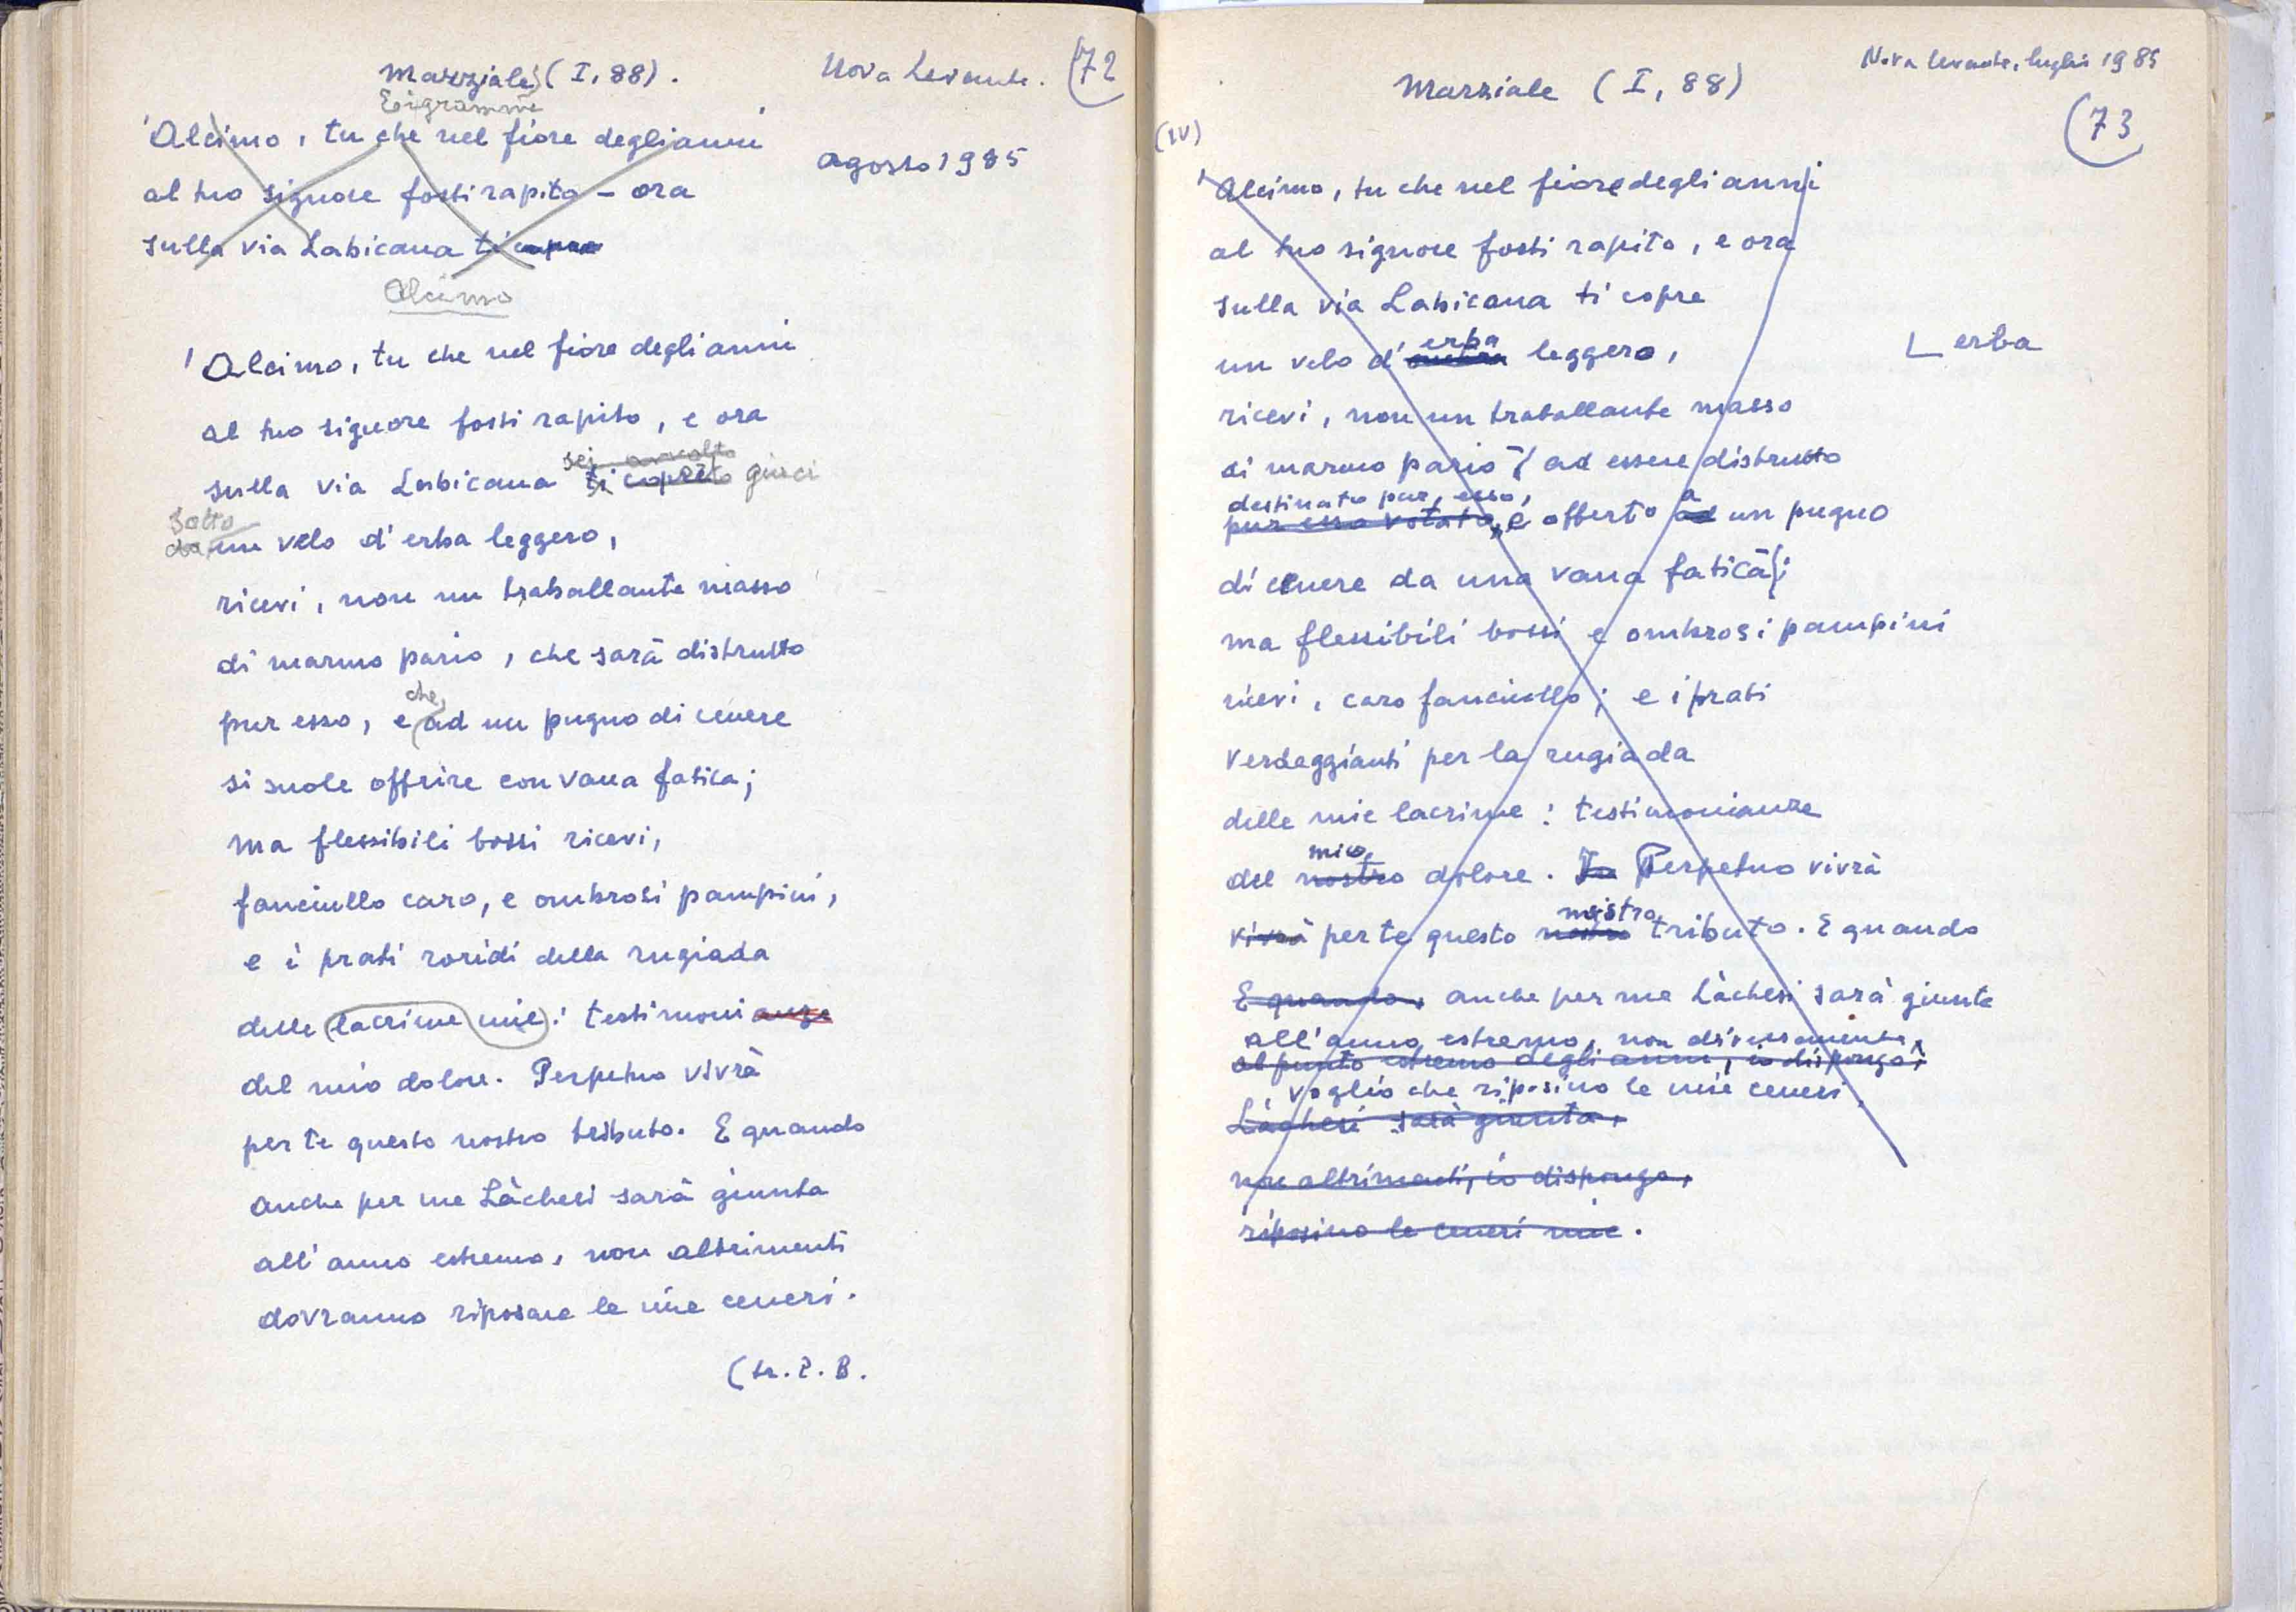 Marziale (I, 88).
Nova Levante.
(72
Epigrammi
agosto 1985
'Alcimo, tu che nel fiore degli anni
al tuo signore fosti rapito – ora
sulla via Labicana ti copre
Alcimo
'Alcimo, tu che nel fiore degli anni
al tuo signore fosti rapito, e ora
sei avvolto
sulla via Labicana ti coperto giaci
sotto
da un velo d'erba leggero,
ricevi, non un traballante masso
di marmo pario, che sarà distrutto
che
pur esso, e ad un pugno di cenere
si suole offrire con vana fatica;
ma flessibili bossi ricevi,
fanciullo caro, e ombrosi pampini,
e i prati roridi della rugiada
delle lacrime mie: testimonianze
del mio dolore. Perpetuo vivrà
per te questo nostro tributo. E quando
anche per me Làchesi sarà giunta
all'anno estremo, non altrimenti
dovranno riposare le mie ceneri.
(tr. P. B.
Nova Levante, luglio 1985
Marziale (I, 88)
(73
(IV)
'Alcimo, tu che nel fiore degli anni
al tuo signore fosti rapito, e ora
sulla via Labicana ti copre
erba
un velo d' ombra leggero,
erba
ricevi, non un traballante masso
di marmo pario ad essere distrutto
destinato pur esso,
pur esso votato, e offerto ad a un pugno
di cenere da una vana fatica;
ma flessibili bossi e ombrosi pampini
ricevi, caro fanciullo; e i prati
verdeggianti per la rugiada
delle mie lacrime: testimonianze
mio
del nostro dolore. Perpetuo vivrà
nostro
vivrà per te questo nostro tributo. E quando
E quando, anche per me Làchesi sarà giunta
all'anno estremo, non diversamente,
al punto estremo degli anni, io dispongo:
voglio che riposino le mie ceneri.
Làchesi sarà giunta,
non altrimenti, io dispongo,
riposino le ceneri mie.